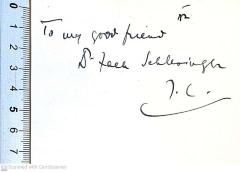 To my good friend
Dr Schlesinger
J. C.
0 1 2 3 4 5 6 7
Scanned with CamScanner